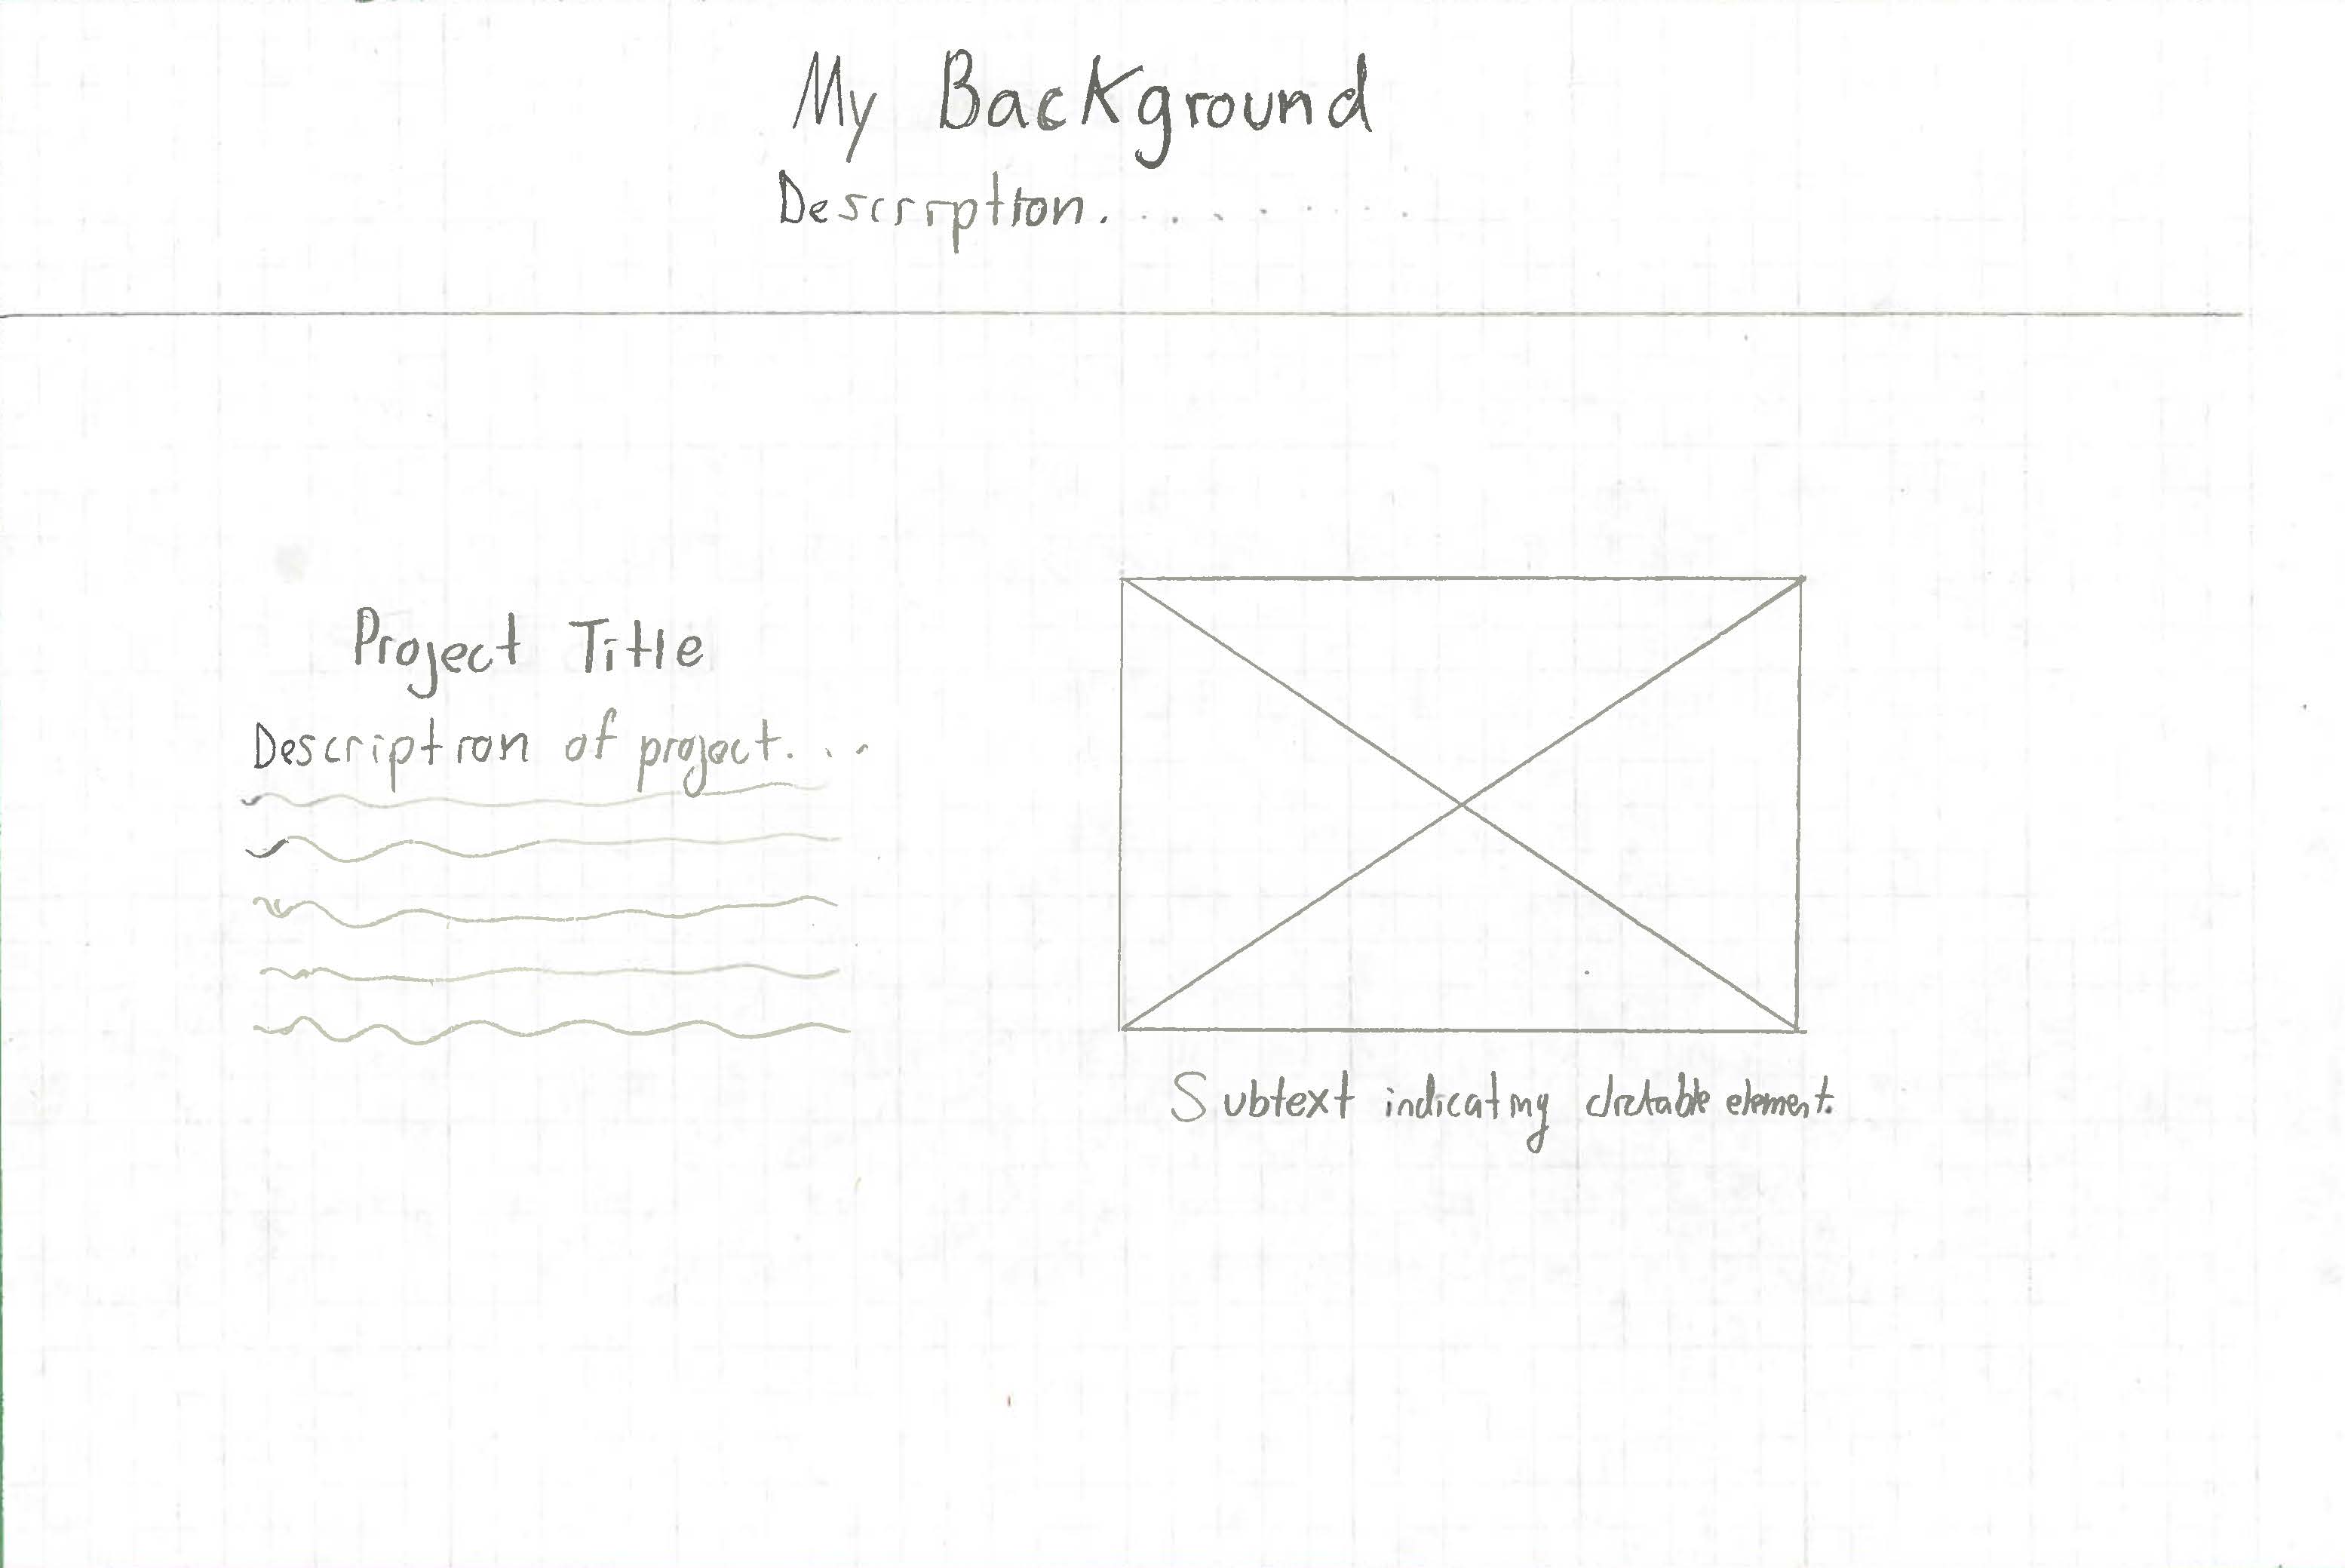 My Background
Description. . . . . . . . .
Project Title
Description of project. . .
Subtext indicating clickable element.